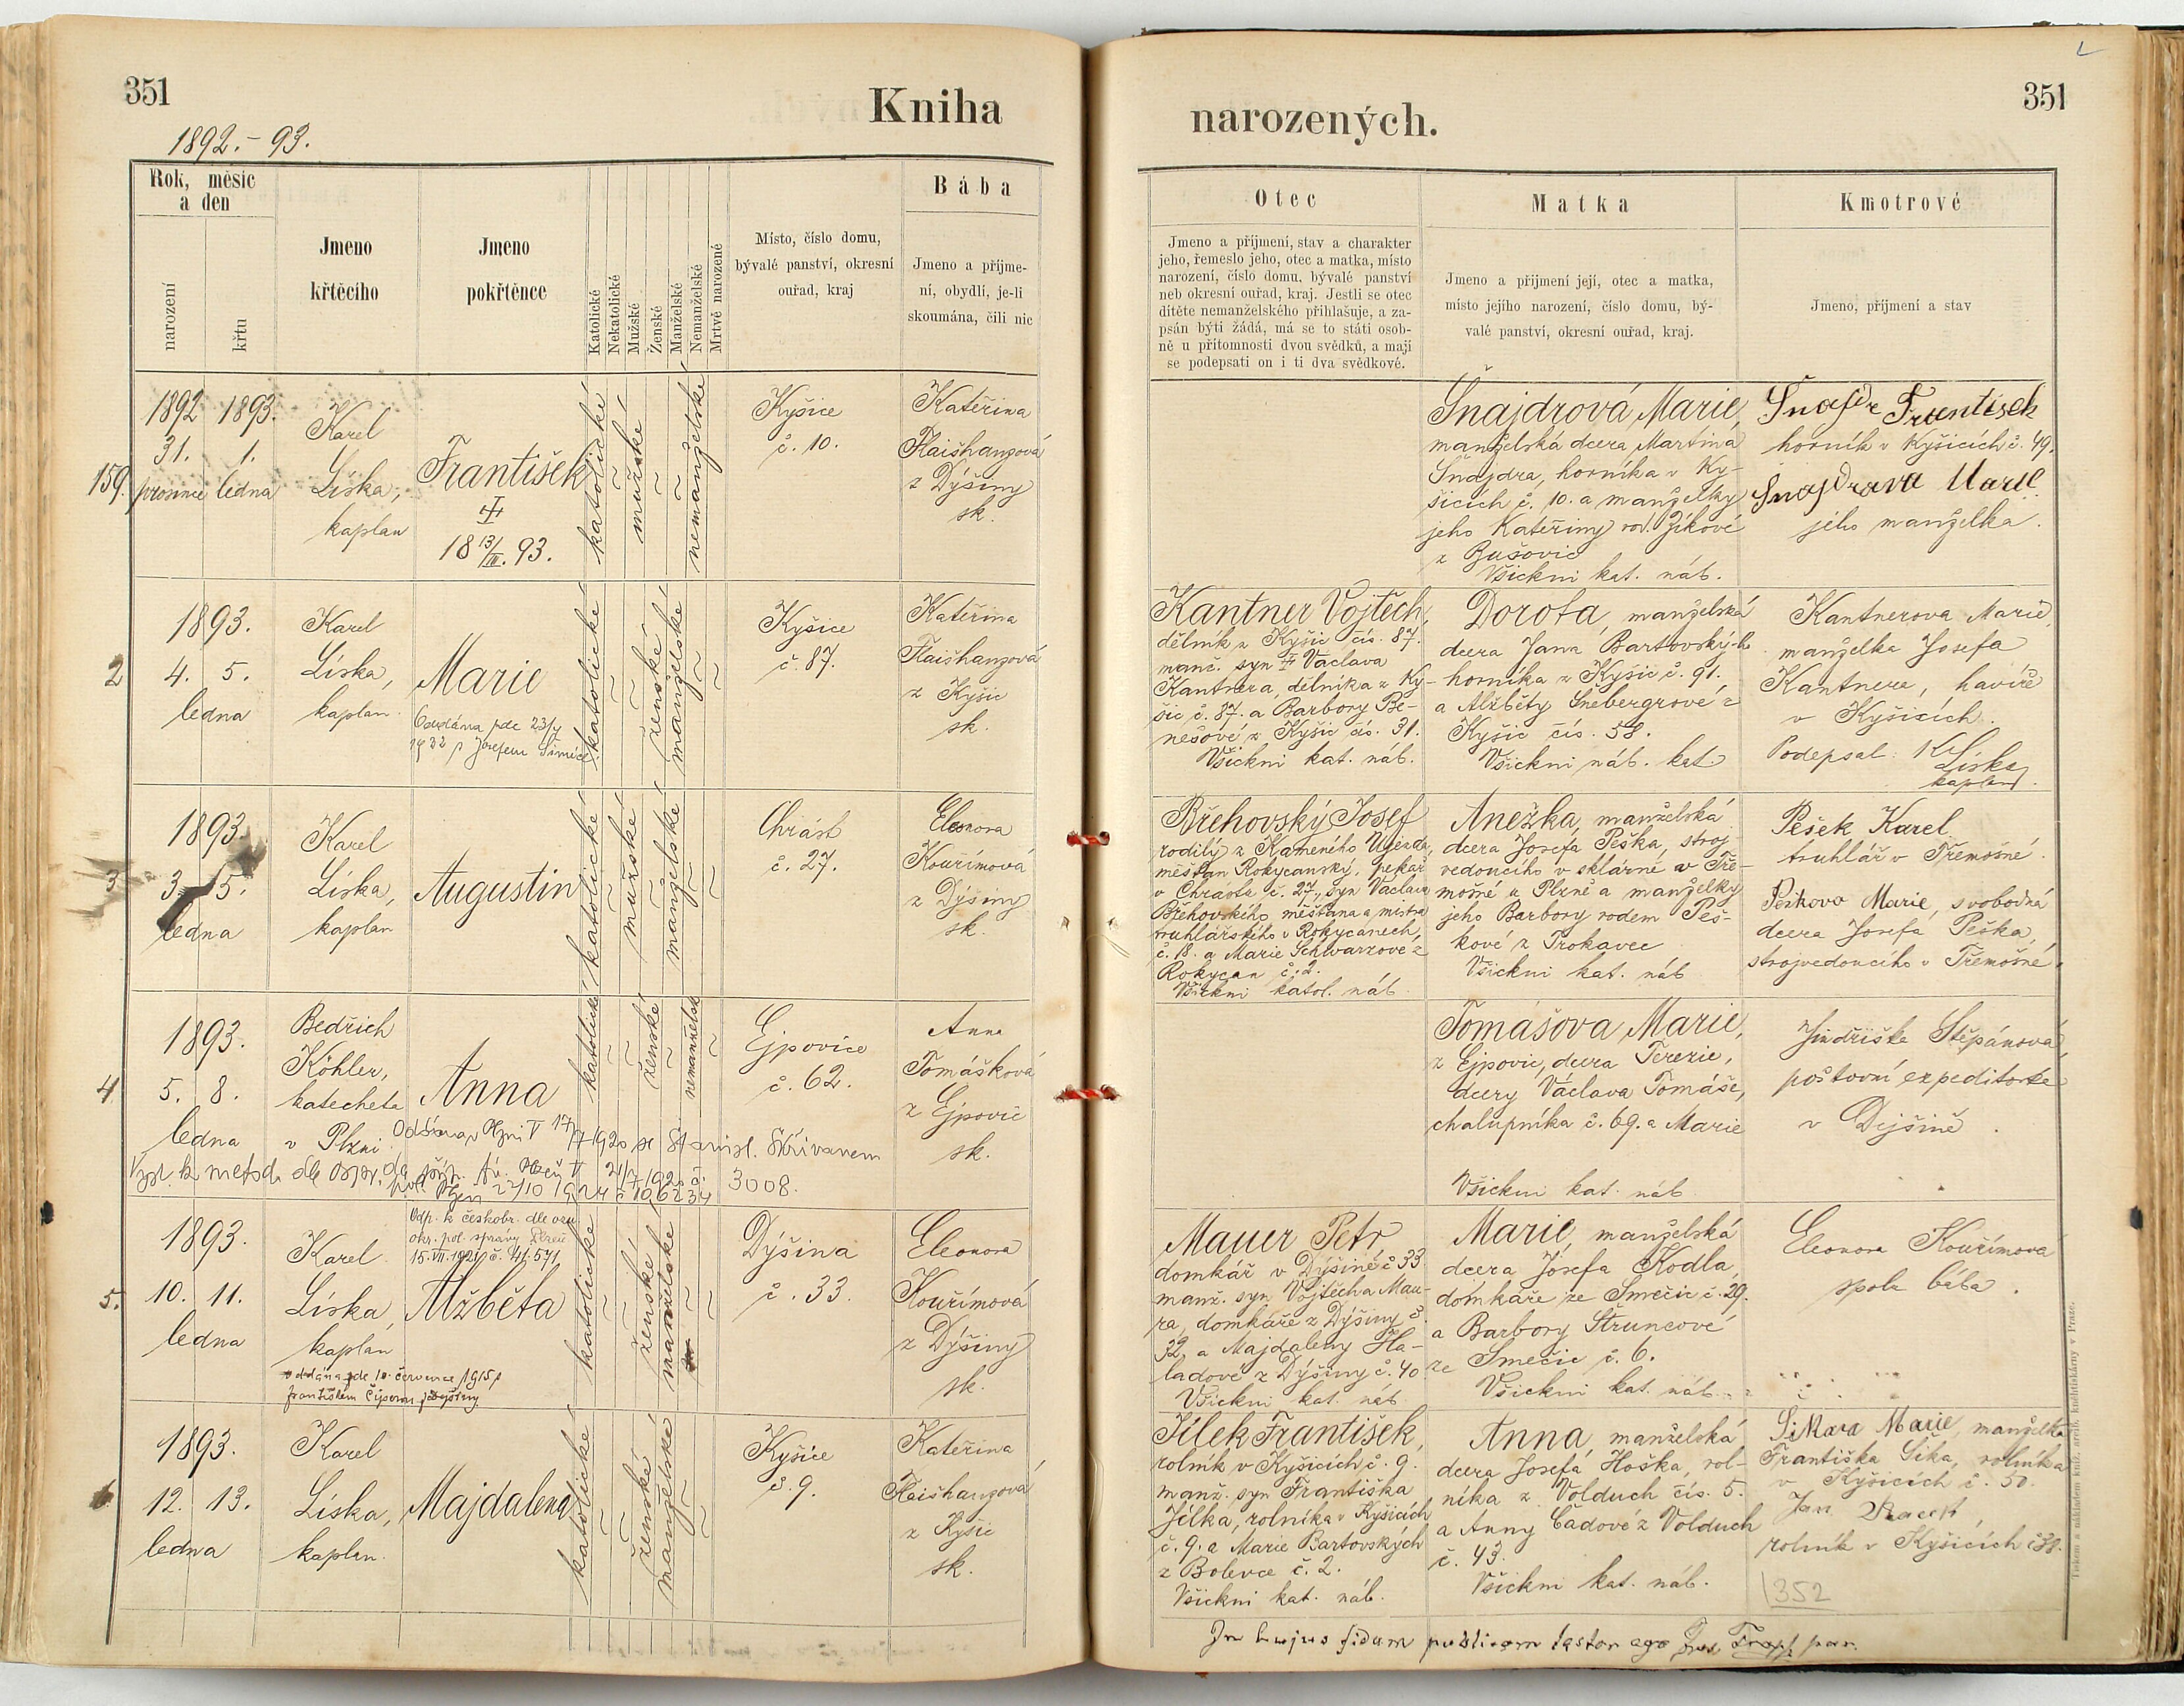 351
Kniha
1892.-93.
Rok, měsíc
a den
narození
křtu
Jmeno
křtěcího
Jmeno
pokřtěnce
Katolické
Nekatolické
Mužské
Ženské
Manželské
Nemanželské
Mrtvě narozené
Místo, číslo domu,
bývalé panství, okresní
ouřad, kraj
Bába
Jmeno a příjme-
ní, obydlí, je-li
skoumána, čili nic
159.
1892 1893.
31. 1.
prosince ledna
Karel
Líska,
kaplan
František
18 13/III. 93.
katolické
mužské
nemanželské
Kyšice
č. 10.
Kateřina
Flaišhanzová
z Dýšiny
sk.
2
1893.
4. 5.
ledna
Karel
Líska,
kaplan
Marie
Oddána zde 23/
1922 s Josefem
katolické
ženské
manželské
Kyšice
č. 87.
Kateřina
Flaišhanzová
z Kyšic
sk.
3
1893.
3. 5.
ledna
Karel
Líska,
kaplan
Augustin
katolické
mužské
manželské
Chrást
č. 27.
Eleonora
Kouřímová
z Dýšiny
sk.
4
1893.
5. 8.
ledna
Bedřich
Köhler,
katecheta
v Plzni
Anna
katolické
ženské
nemanželské
Ejpovice
č. 62.
Anna
Tomášková
z Ejpovic
sk.
1920 se Stanisl. Skřivanem
3008.
5.
1893.
10. 11.
ledna
Karel
Líska,
kaplan
Odp. k českobr. dle ozn.
okr. pol. správy Plzeň
15.VII.1921 č. 41.571
Alžběta
oddána zde 10. července 1915 s
Františkem
katolické
ženské
manželské
Dýšina
č. 33.
Eleonora
Kouřímová
z Dýšiny
sk.
6
1893.
12. 13.
ledna
Karel
Líska,
kaplan.
Majdalena
katolické
ženské
manželské
Kyšice
č. 9.
Kateřina
Flaišhanzová
z Kyšic
sk.
351
narozených.
Otec
Jmeno a příjmení, stav a charakter
jeho, řemeslo jeho, otec a matka, místo
narození, číslo domu, bývalé panství
neb okresní ouřad, kraj. Jestli se otec
dítěte nemanželského přihlašuje, a za-
psán býti žádá, má se to státi osob-
ně u přítomnosti dvou svědků, a mají
se podepsati on i ti dva svědkové.
Matka
Jmeno a příjmení její, otec a matka,
místo jejího narození, číslo domu, bý-
valé panství, okresní ouřad, kraj.
Kmotrové
Jmeno, příjmení a stav
Šnajdrová Marie,
manželská dcera Martina
Šnajdra, horníka v Ky-
šicích č. 10. a manželky
jeho Kateřiny rod. Zíkové
z Bušovic
Všickni kat. náb.
Šnajdr František
horník v Kyšicích č. 49.
Šnajdrova Marie
jeho manželka.
Kantner Vojtěch,
dělník z Kyšic čís. 87.
manž. syn Václava
Kantnera, dělníka z Ky-
šic č. 87. a Barbory Be-
nešové z Kyšic čís. 31.
Všickni kat. náb.
Dorota, manželská
dcera Jana Bartovských
horníka z Kyšic č. 91.
a Alžběty Šnebergrové z
Kyšic čís. 58.
Všickni náb. kat.
Kantnerova Marie,
manželka Josefa
Kantnera, havíře
v Kyšicích.
Podepsal: K. Líska
kaplan.
Břehovský Josef
rodilý z Kameného Újezda,
měšťan Rokycanský, pekař
v Chrástě č. 27., syn Václava
Břehovského, měšťana a mistra
truhlářského v Rokycanech
č. 18. a Marie Schwarzové z
Rokycan č. 2.
Všickni katol. náb.
Anežka, manželská
dcera Josefa Peška, stroj-
vedoucího v sklárně v Tře-
mošné u Plzně a manželky
jeho Barbory rodem Peš-
kové z Trokavec
Všickni kat. náb
Pešek Karel
truhlář v Třemošné.
Peškova Marie, svobodná
dcera Josefa Peška,
strojvedoucího v Třemošné.
Tomášova Marie,
z Ejpovic, dcera Terezie,
dcery Václava Tomáše,
chalupníka č. 69. a Marie
Všickni kat. náb
Jindřiška Štěpánová,
poštovní expeditorka
v Dýšině.
Mauer Petr
domkář v Dýšině č. 33
manž. syn Vojtěcha Mau-
ra, domkáře z Dýšiny č.
32, a Majdaleny Ha-
ladové z Dýšiny č. 40
Všickni kat. náb.
Marie, manželská
dcera Josefa Kodla,
domkáře ze Smečic č. 29.
a Barbory Štruncové
ze Smečic č. 6.
Všickni kat. náb.
Eleonora Kouřímová
spolu bába.
Jílek František,
rolník v Kyšicích č. 9.
manž. syn Františka
Jílka, rolníka v Kyšicích
č. 9. a Marie Bartovských
z Bolevce č. 2.
Všickni kat. náb.
Anna, manželská
dcera Josefa Hoška, rol-
níka z Volduch čís. 5.
a Anny Cadové z Volduch
č. 43.
Všickni kat. náb.
Marie, manželka
Františka Síka, rolníka
v Kyšicích č. 50.
Jan
rolník v Kyšicích
352
In hujus fidem publicam testor ego